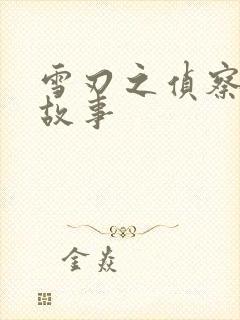 雪刃之偵察
故事
金焱